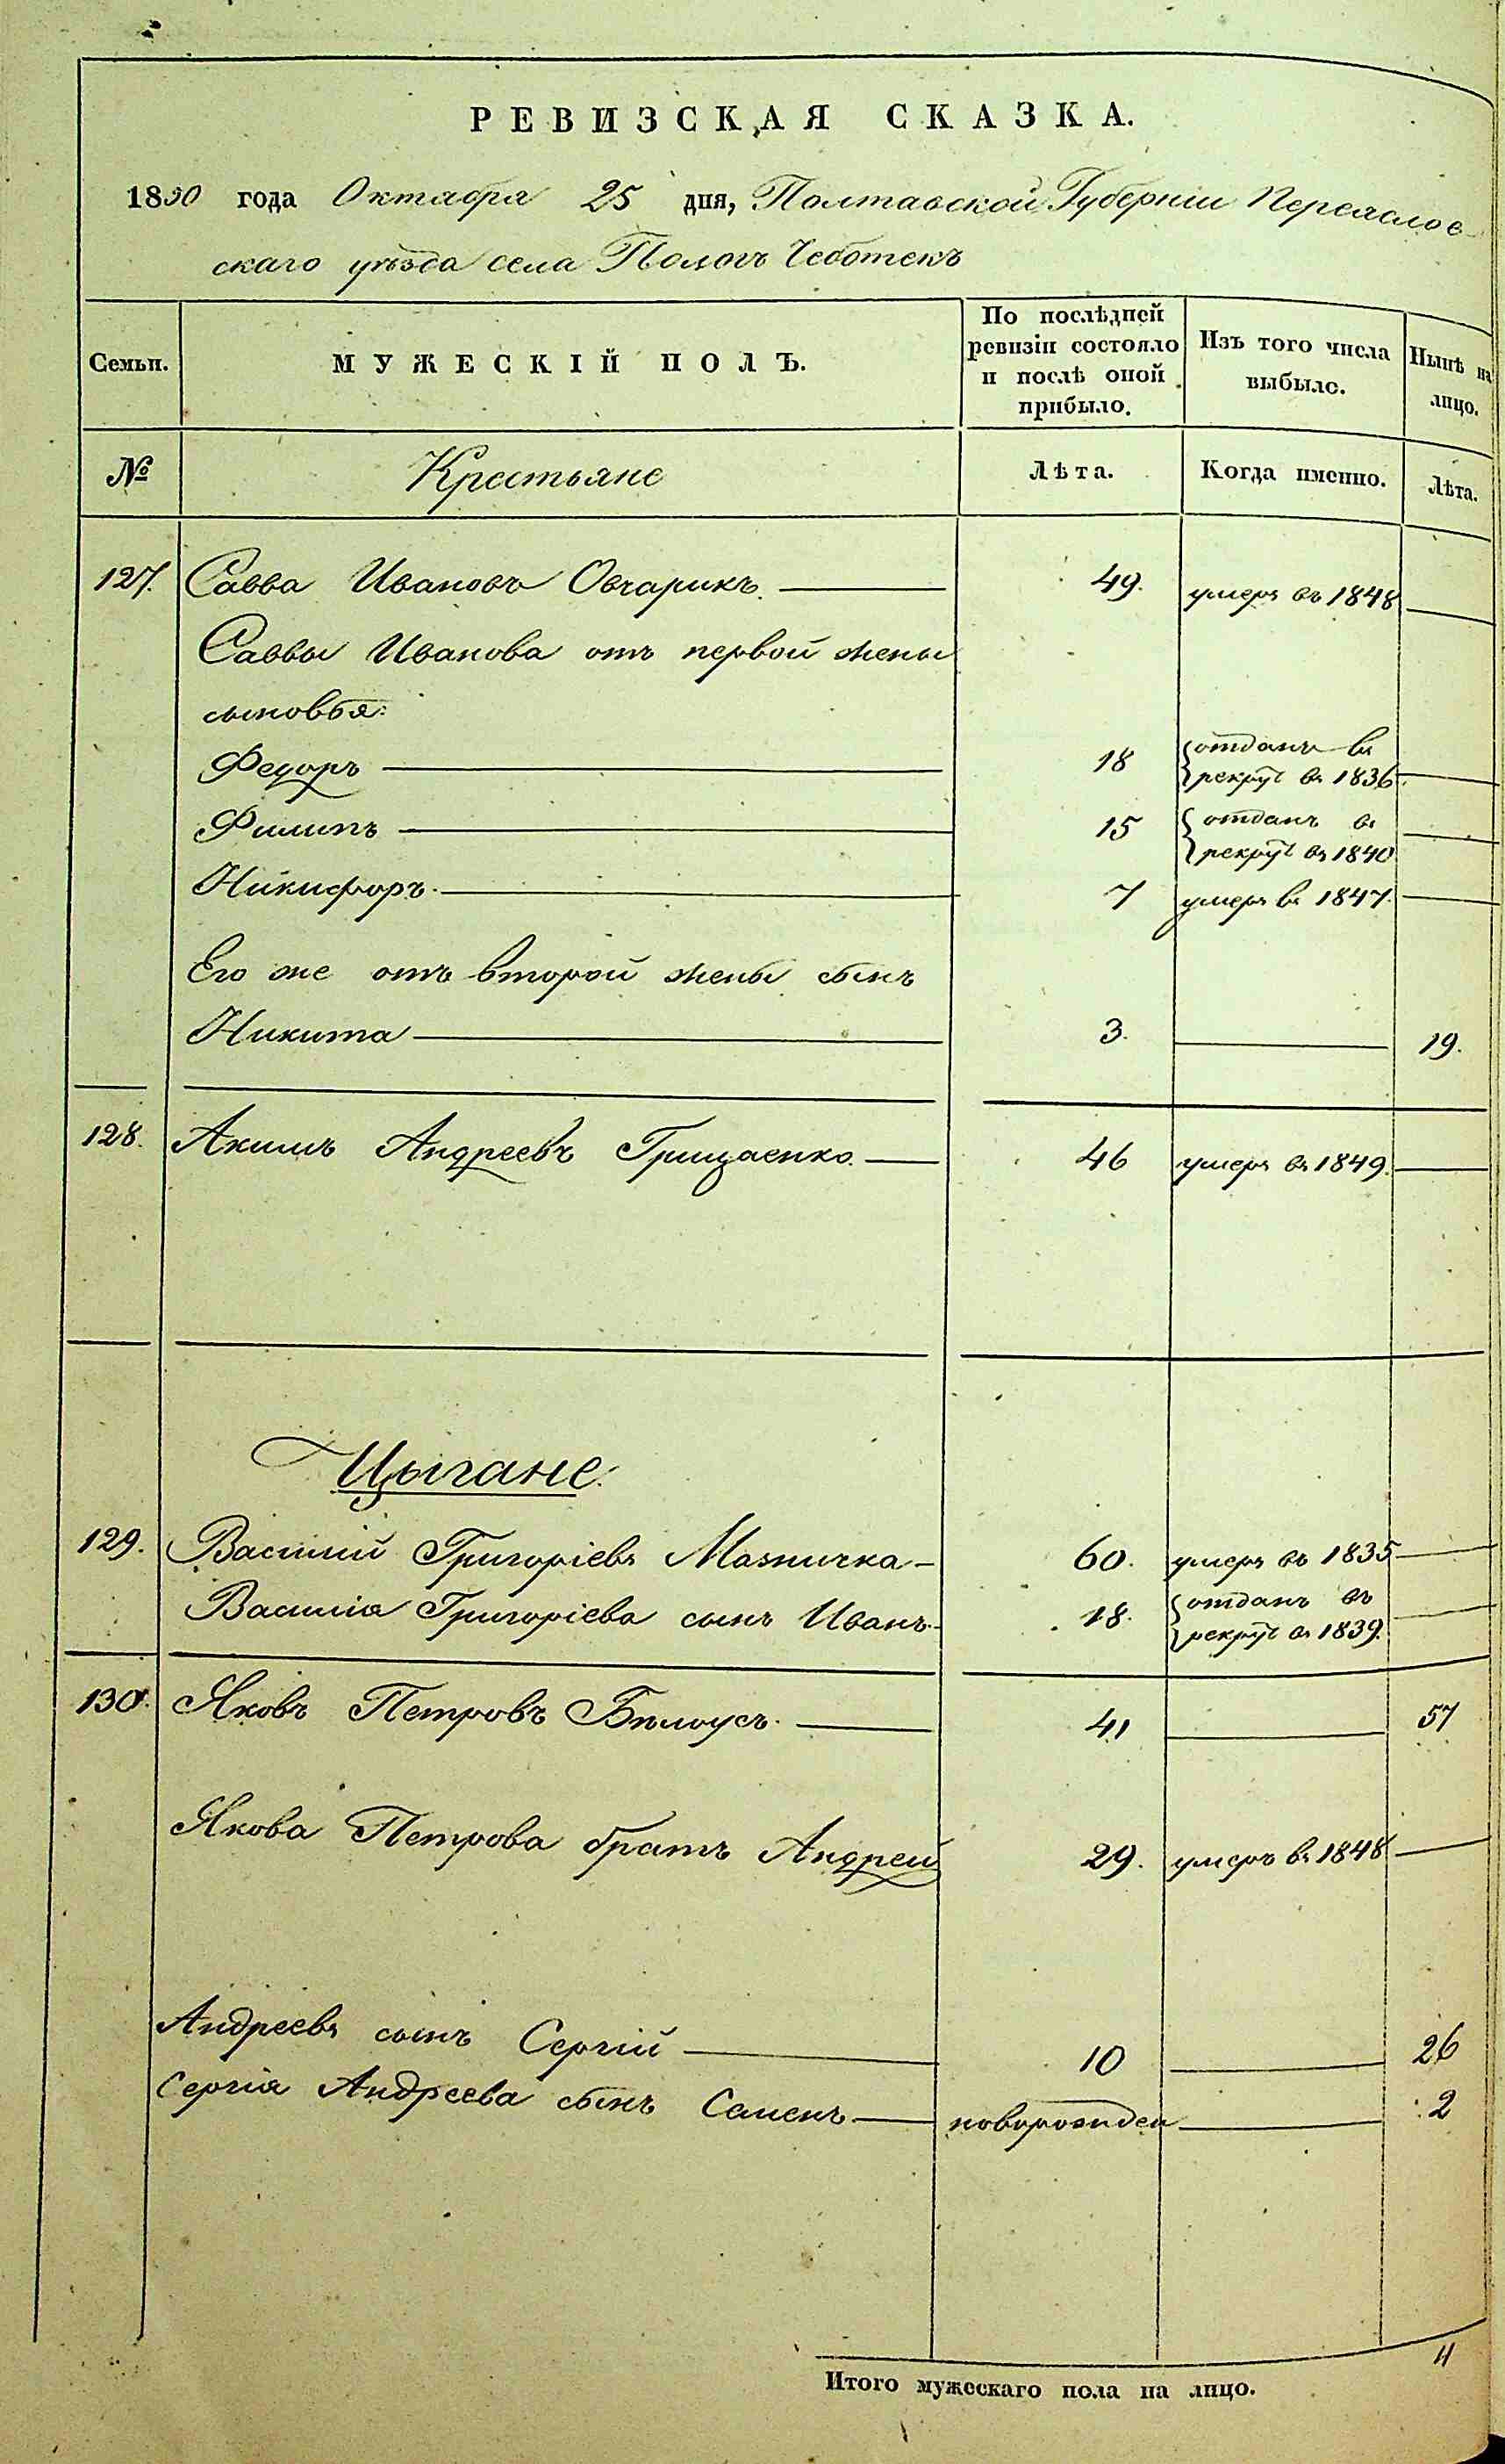 РЕВИЗСКАЯ СКАЗКА.
1850 года Октября 25 дня, Полтавской Губерніи Переяслов-
скаго уѣзда села Пологъ Чоботекъ
Семьи.
МУЖЕСКІЙ ПОЛЪ.
По послѣдней
ревизіи состояло
и послѣ оной
прибыло.
Изъ того числа
выбыло.
Нынѣ на
лицо.
№
Крестьяне
Лѣта.
Когда именно.
Лѣта.
127. Савва Ивановъ Овчарикъ. 49. умеръ въ 1848
Саввы Иванова отъ первой жены
сыновья:
Федоръ 18 отданъ въ
рекрут въ 1836
Филипъ 15 отданъ въ
рекрут въ 1840
Никифоръ 7 умеръ въ 1847.
Его же отъ второй жены сынъ
Никита 3. 19.
128. Акимъ Андреевъ Грицаенко. 46 умеръ въ 1849.
Цыгане.
129. Василий Григоріевъ Мазничка 60. умеръ въ 1835
Василія Григоріева сынъ Иванъ. 18. отданъ въ
рекрут въ 1839.
130. Яковъ Петровъ Бѣлоусъ. 41 57
Якова Петрова братъ Андрей 29. умеръ въ 1848
Андреевъ сынъ Сергій 10 26
Сергія Андреева сынъ Семенъ новорожден 2
4
Итого мужескаго пола на лицо.